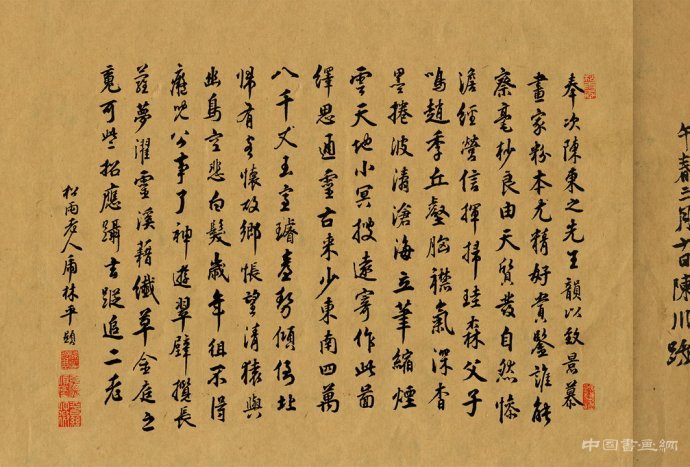 午春二月 日陳川跋
奉次陳東之先王韻以致景慕
畫家粉本尤精好賞鑒誰能
察毫杪良由天質發自然慘
澹經營信揮掃珪森父子
鳴趙季丘壑胸襟氣深杳
墨捲波濤滄海立筆縮煙
雲天地小冥搜遠寄作此圖
繹思通靈古來少東南四萬
八千丈玉室璿臺勢傾倚北
歸有客懷故鄉悵望清猿與
幽鳥空悲白髮歲年徂不得
癡兒公事了神遊翠壁攬長
蘿夢濯靈溪藉纖草金庭之
魂可些招應躡玄蹤追二老
松雨老人 林平顯
中国書画網